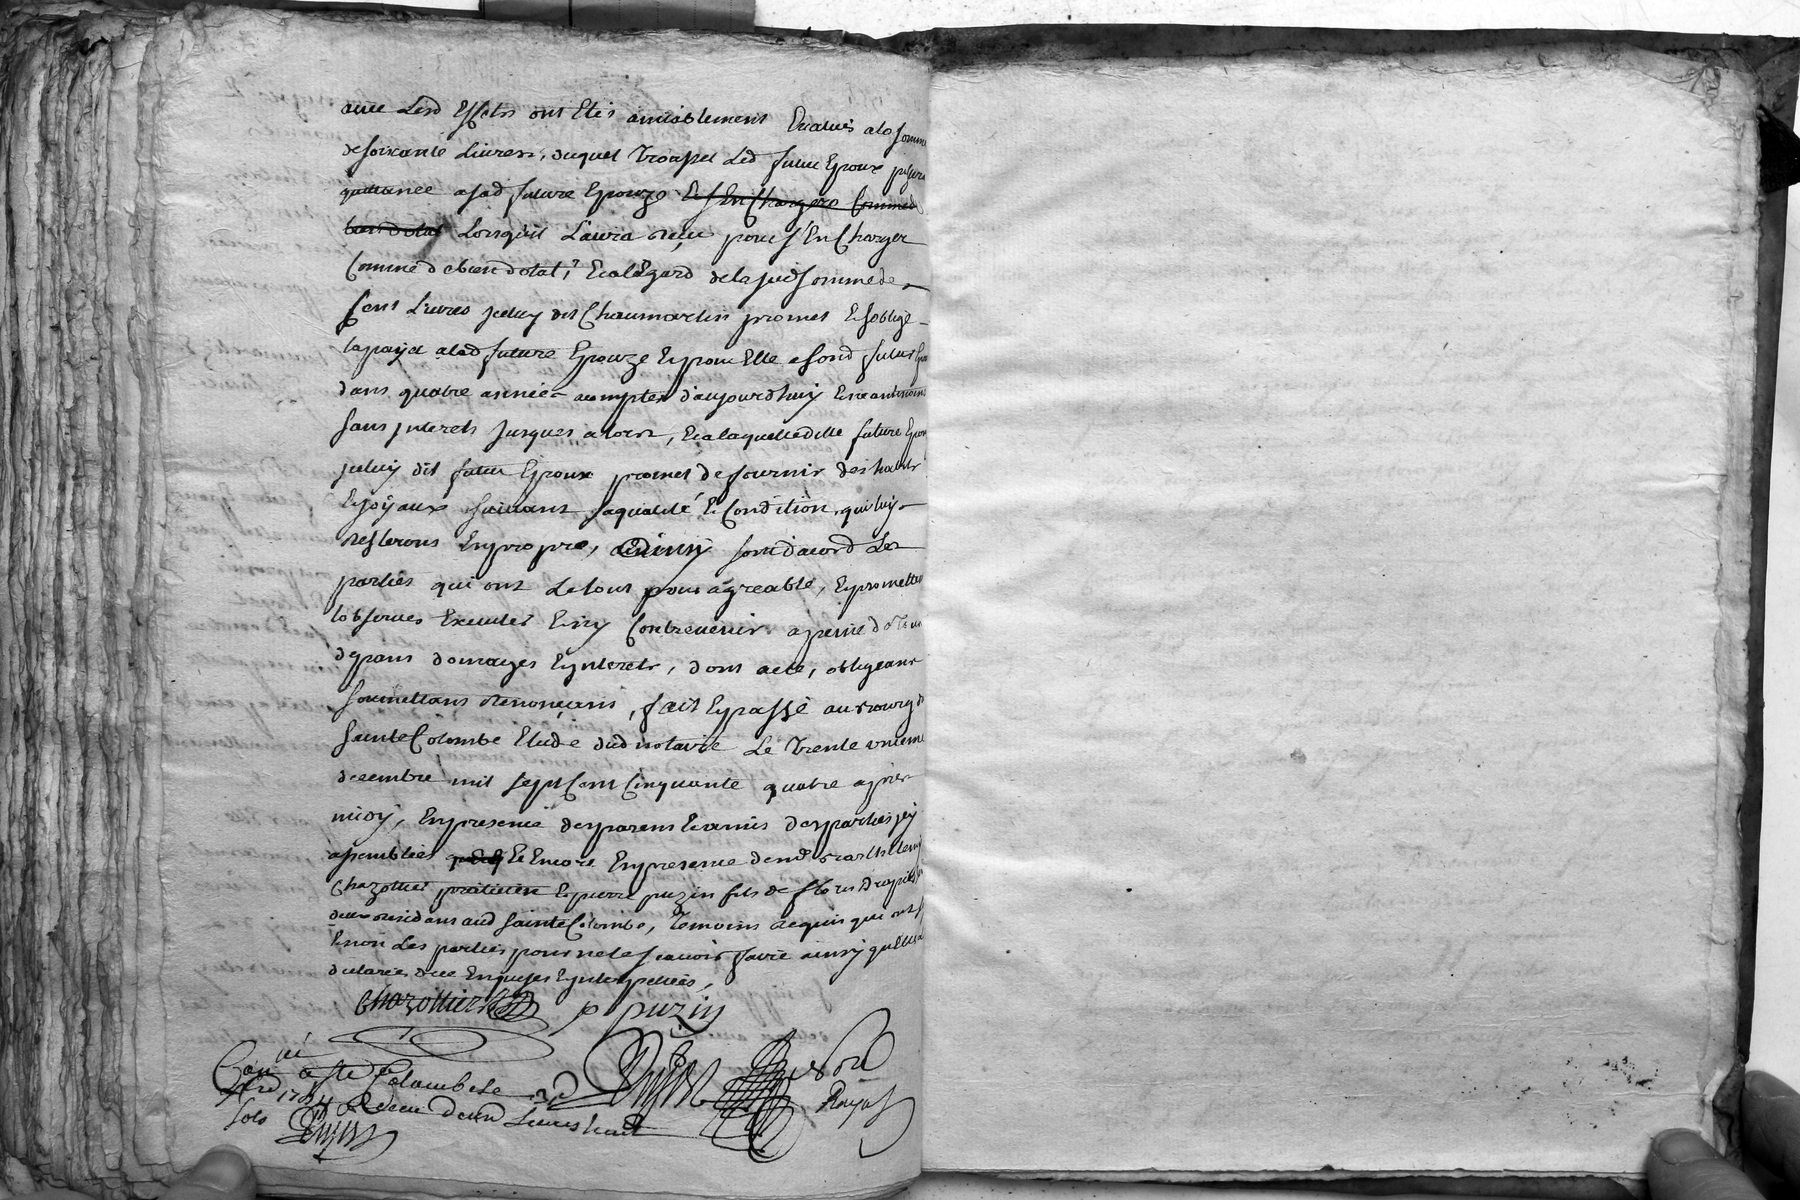 avec Lesd Effets ont Etés amiablement Evalués ala somme
de soixante Livres, duquel Troussel Led futur Epoux passera
quittance a lad future Epouze Et s'En Chargera Comme de
bien dotal Lorsquil L'aura reçu pour s'En Charger
Comme de bien dotal, Et a l'Egard de la susd somme de
Cent Livres iceluy dit Chaumartin promet Et s'oblige
la payer alad future Epouze Et pour Elle a sond futur Epoux
dans quatre année a compter d'aujourd'huy Et neantmoins
sans interets jusques alors, Et a laquelle dite future Epouze
iceluy dit futur Epoux promet de fournir des habits
Et joyaux suivant sa qualité Et Condition, qui luy
resterons En propre, ainsy sont d'acord Les
parties qui ont Le tout pour agreable, Et promettent
l'observer Executer Et n'y Contrevenir a peine de Tous
depans domages Et interets, dont acte, obligeant
soumettans renonçans, fait Et passé au Bourg de
Sainte Colombe Etude dud notaire Le Trente unieme
decembre mil sept Cent Cinquante quatre apres
midy, En presence des parens Et amis des parties icy
assemblées Et Encore En presence de md Barthelemy
Chazottier praticien Et pierre puzin fils de
deux residans aud Sainte Colombe, Temoins requis qui ont signé
Et non Les parties pour ne le scavoir faire ainsy qu'Elles ont
declarées de ce Enquises Et interpellées,
Chazottier p puzin
Conllé a Ste Colombe le
1754 Receu d'eux Livres huit
sols
Royal